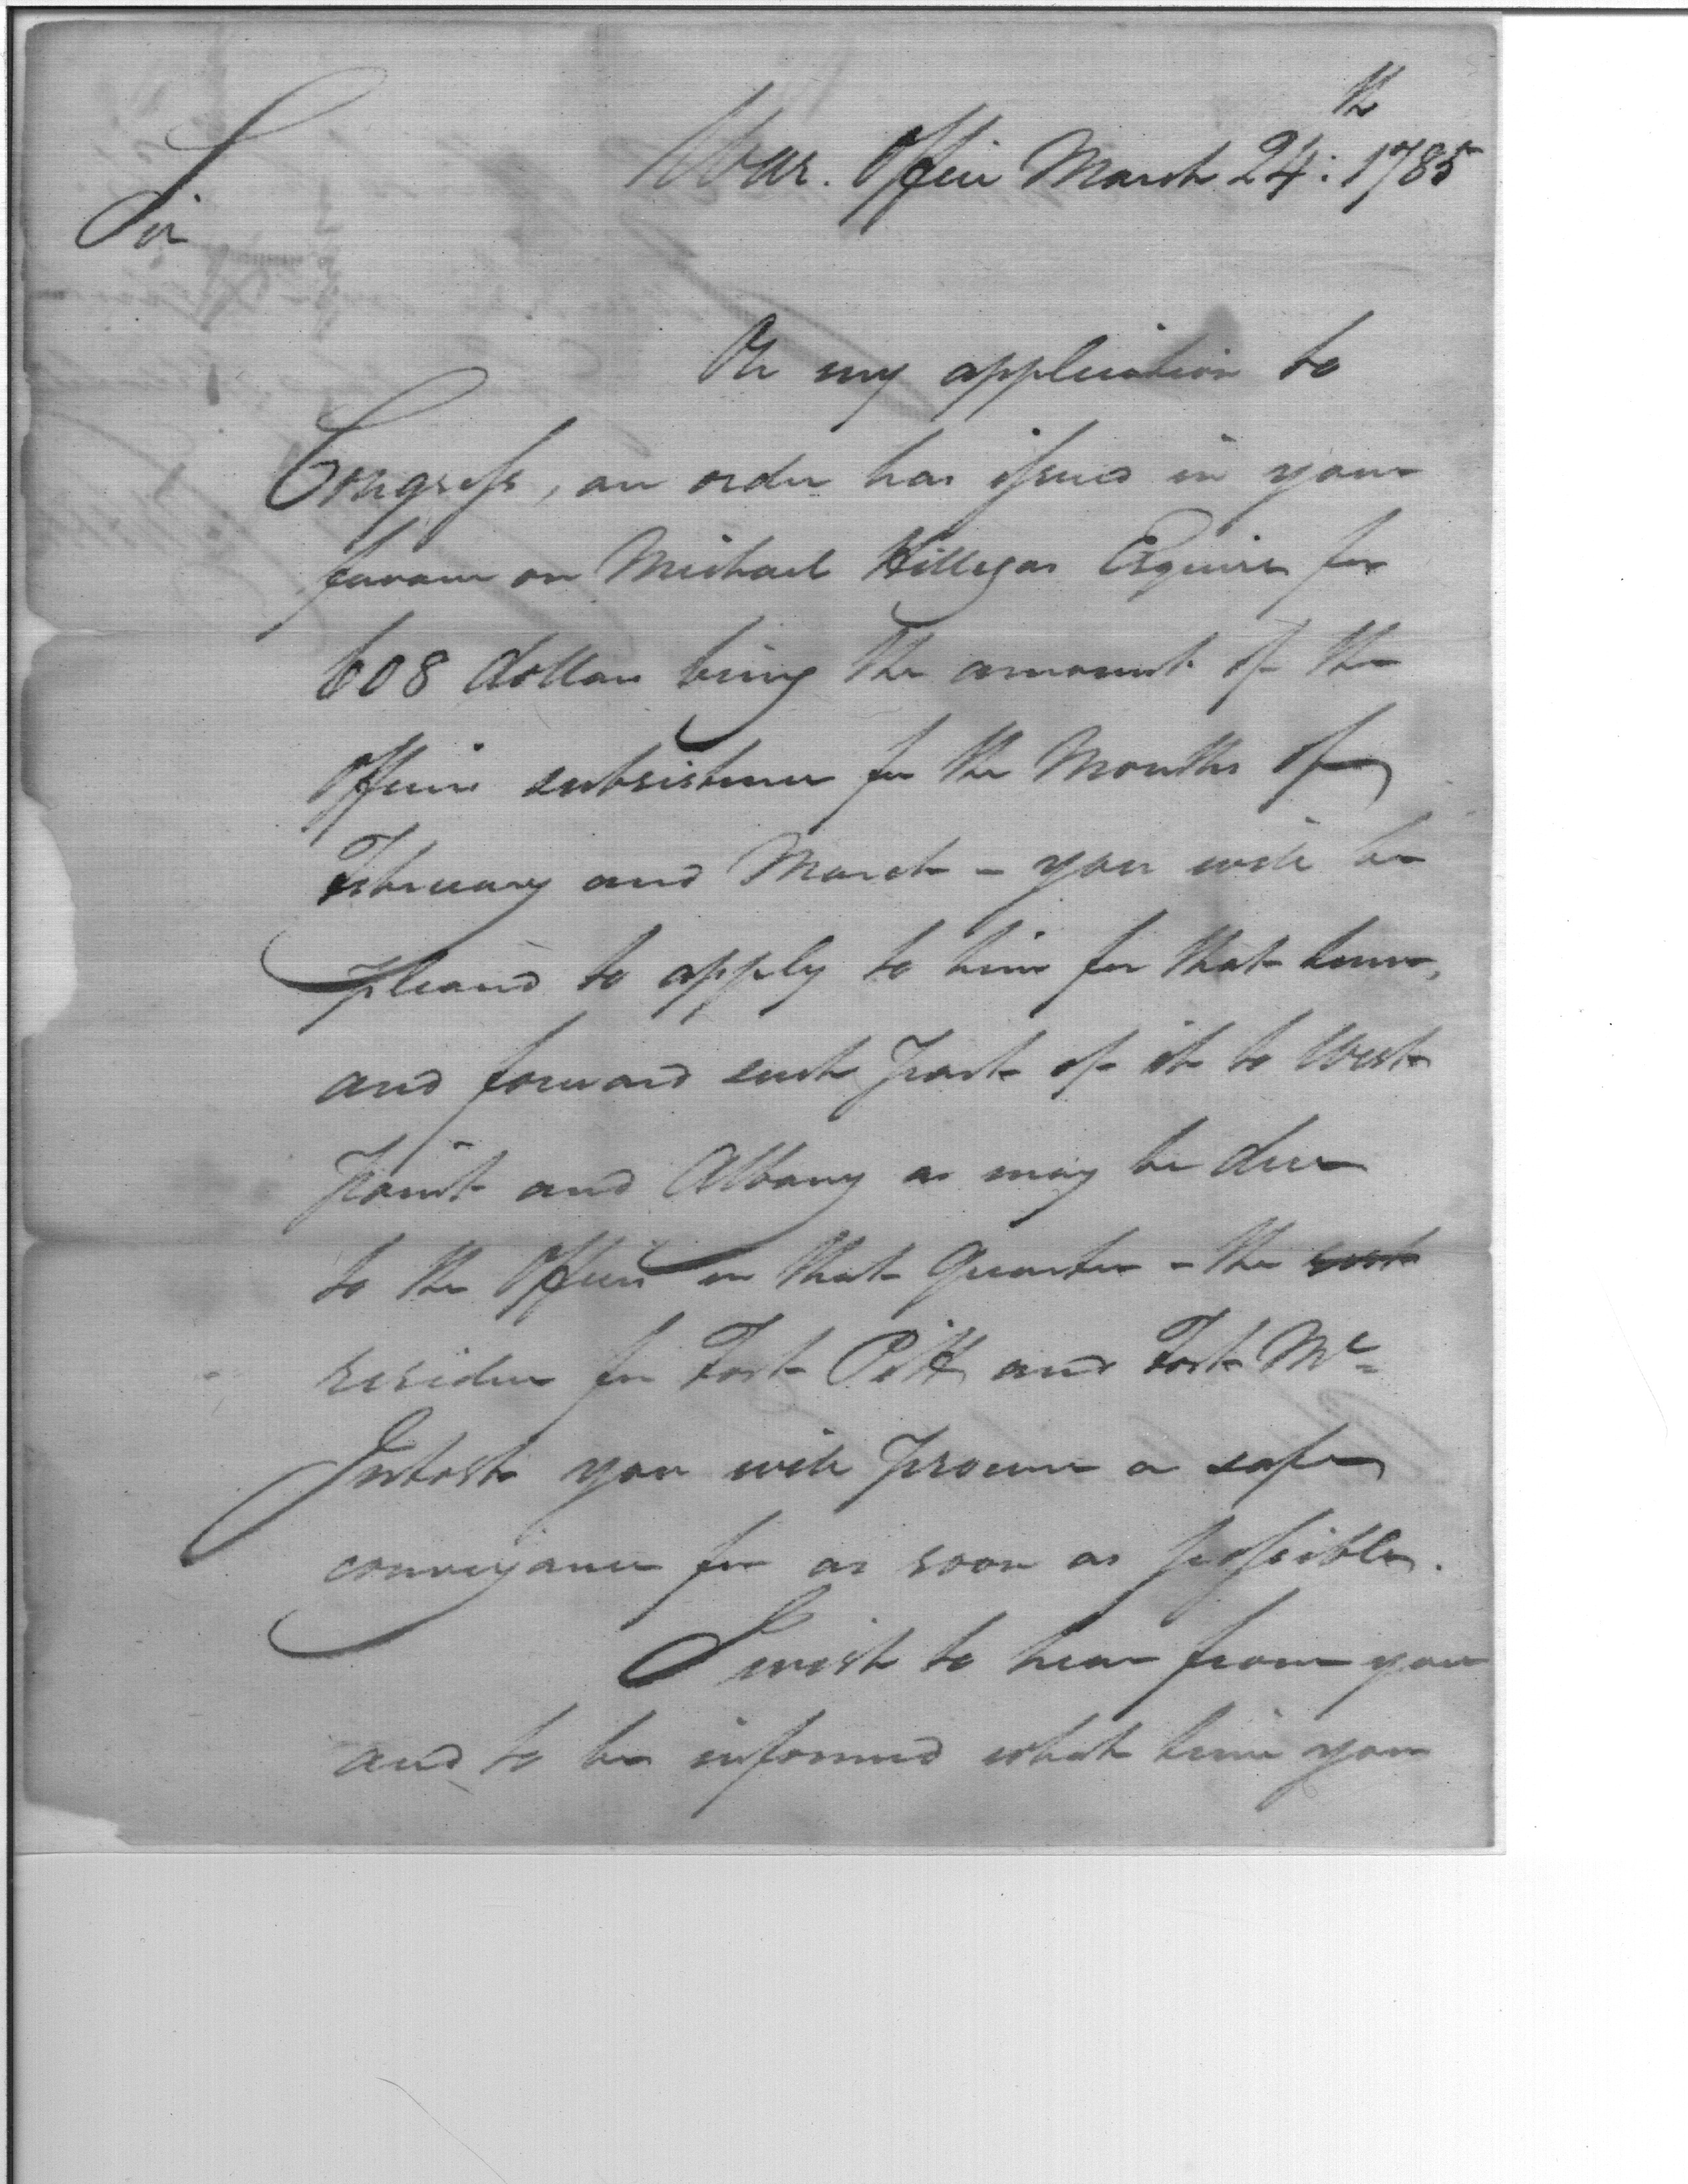 War. Office March 24th: 1785
Sir
On my application to
Congress, an order has issued in your
favour on Michael Hillegas Esquire for
608 dollars being the amount of the
Officers subsistence for the Months of
February and March - you will be
pleased to apply to him for that sum,
and forward such part of it to West
Point and Albany as may be due
to the Officers in that Quarter - the
residue for Fort Pitt and Fort Mc=
Intosh you will procure a safe
conveyance for as soon as possible.
I wish to hear from you
and to be informed what time you